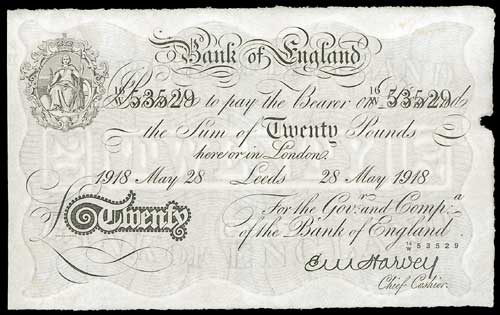 Bank of England
16/W 53529 to pay the Bearer on Demand 16/W 53529
the Sum of Twenty Pounds
here or in London.
1918 May 28 Leeds 28 May 1918
For the Govr. and Compa.
of the Bank of England.
£ Twenty
16/W 53529
E M Harvey
Chief Cashier.